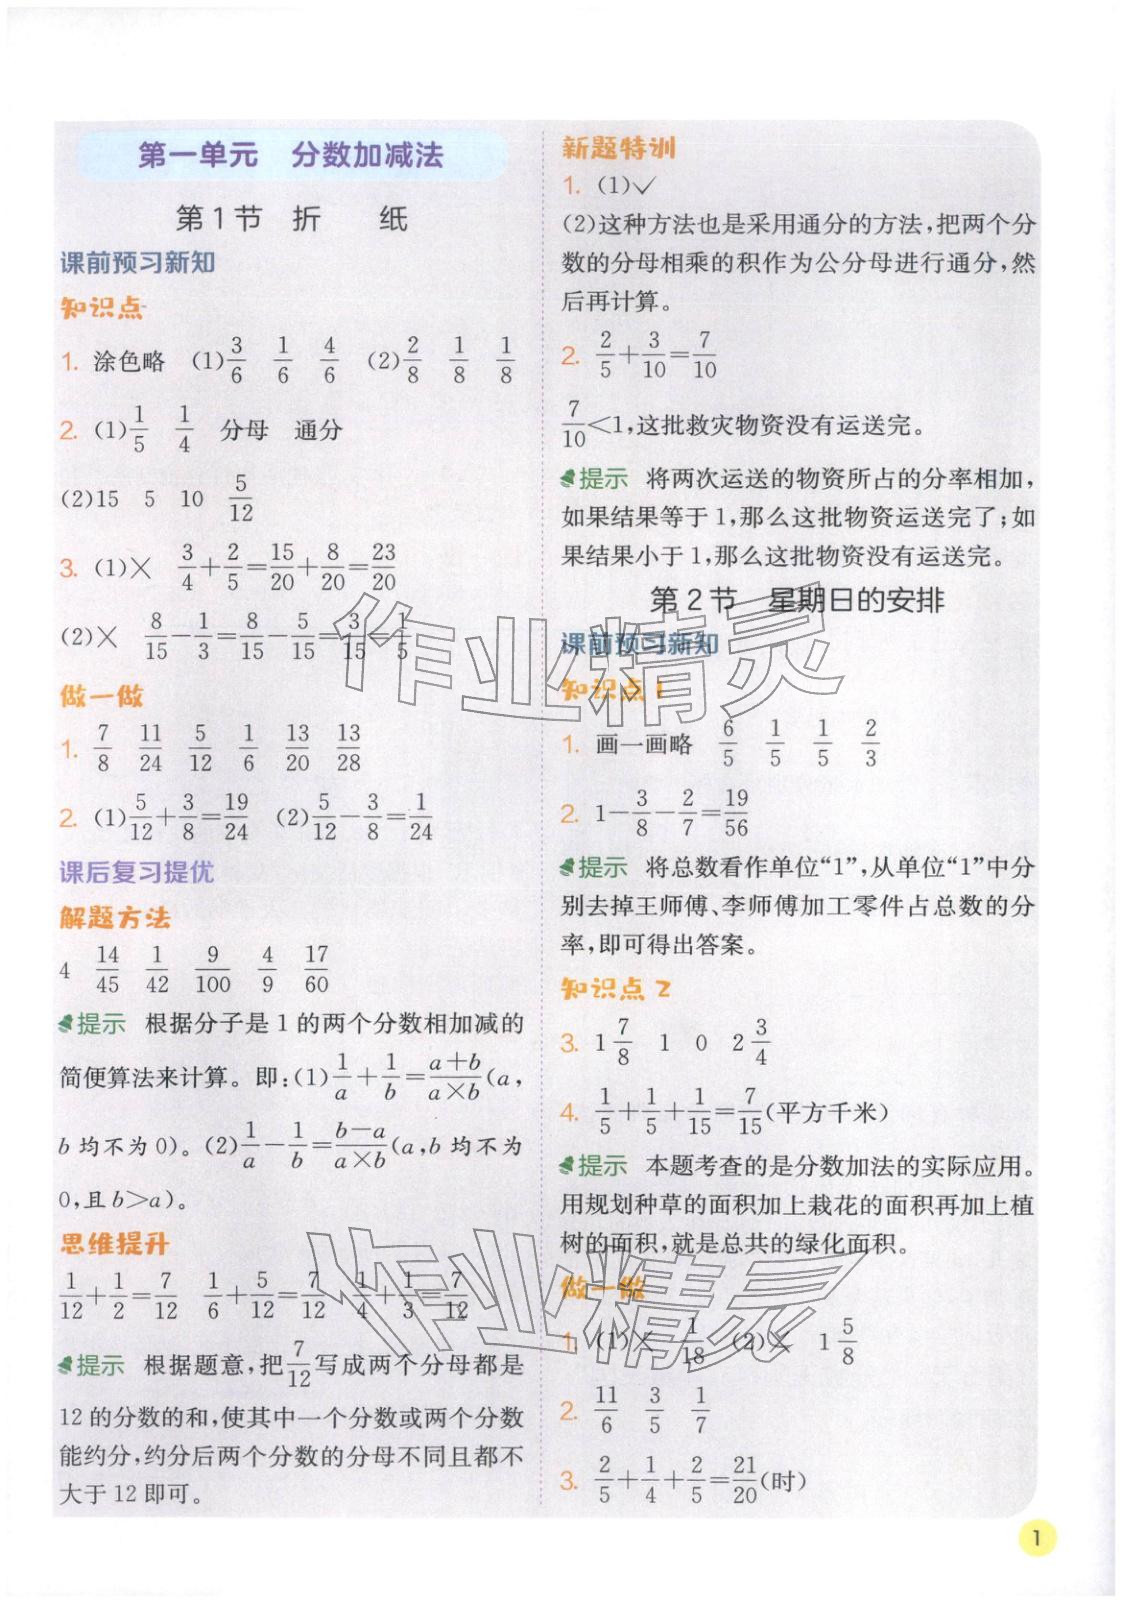 第一单元 分数加减法
第1节 折 纸
课前预习新知
知识点
1. 涂色略 (1)3/6 1/6 4/6 (2)2/8 1/8 1/8
2. (1)1/5 1/4 分母 通分
(2)15 5 10 5/12
3. (1)× 3/4+2/5=15/20+8/20=23/20
(2)× 8/15-1/3=8/15-5/15=3/15=1/5
做一做
1. 7/8 11/24 5/12 1/6 13/20 13/28
2. (1)5/12+3/8=19/24 (2)5/12-3/8=1/24
课后复习提优
解题方法
4 14/45 1/42 9/100 4/9 17/60
提示 根据分子是1的两个分数相加减的
简便算法来计算。即:(1)1/a+1/b=a+b/a×b(a,
b均不为0)。(2)1/a-1/b=b-a/a×b(a,b均不为
0,且b>a)。
思维提升
1/12+1/2=7/12 1/6+5/12=7/12 1/4+1/3=7/12
提示 根据题意,把7/12写成两个分母都是
12的分数的和,使其中一个分数或两个分数
能约分,约分后两个分数的分母不同且都不
大于12即可。
新题特训
1. (1)✓
(2)这种方法也是采用通分的方法,把两个分
数的分母相乘的积作为公分母进行通分,然
后再计算。
2. 2/5+3/10=7/10
7/10<1,这批救灾物资没有运送完。
提示 将两次运送的物资所占的分率相加,
如果结果等于1,那么这批物资运送完了;如
果结果小于1,那么这批物资没有运送完。
第2节 星期日的安排
课前预习新知
知识点1
1. 画一画略 6/5 1/5 1/5 2/3
2. 1-3/8-2/7=19/56
提示 将总数看作单位“1”,从单位“1”中分
别去掉王师傅、李师傅加工零件占总数的分
率,即可得出答案。
知识点2
3. 1 7/8 1 0 2 3/4
4. 1/5+1/5+1/15=7/15(平方千米)
提示 本题考查的是分数加法的实际应用。
用规划种草的面积加上栽花的面积再加上植
树的面积,就是总共的绿化面积。
做一做
1. (1)× 1/18 (2)× 1 5/8
2. 11/6 3/5 1/7
3. 2/5+1/4+2/5=21/20(时)
1
作业精灵
作业精灵